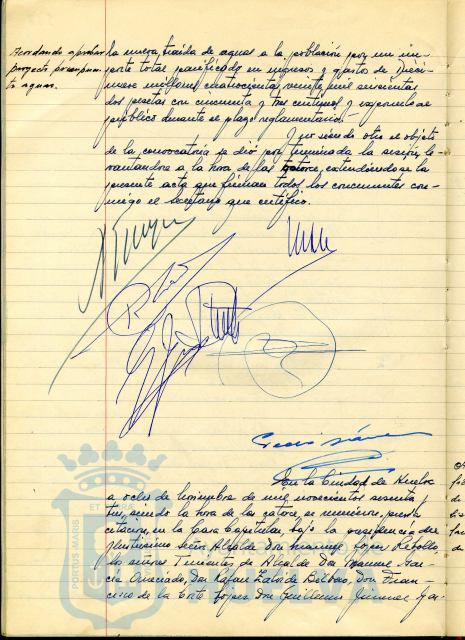 Acordando aprobar
proyecto presupues-
to aguas.
la nueva traida de aguas a la población por un im-
porte total en ingresos y gastos de Dieci-
nueve millones cuatrocientas veinte mil seiscientas
dos pesetas con cincuenta y tres centimos y exponerlo al
público durante el plazo reglamentario.
Y no siendo otro el objeto
de la convocatoria se dió por terminada la sesión, le-
vantandose a la hora de las catorce, extendiendose la
presente acta que firman todos los concurrentes con-
migo el secretario que certifico.
En la Ciudad de Huelva
a ocho de Noviembre de mil novecientos sesenta y
tres, siendo la hora de las catorce, se reunieron, previa
citación, en la Casa Capitular, bajo la presidencia del
Ilustrisimo Señor Alcalde Don Manuel López
los señores Tenientes de Alcalde Don Manuel Gar-
cia Don Rafael de Bilbao, Don Fran-
cisco de la Corte López Don Guillermo Jimenez
PORTUS MARIS